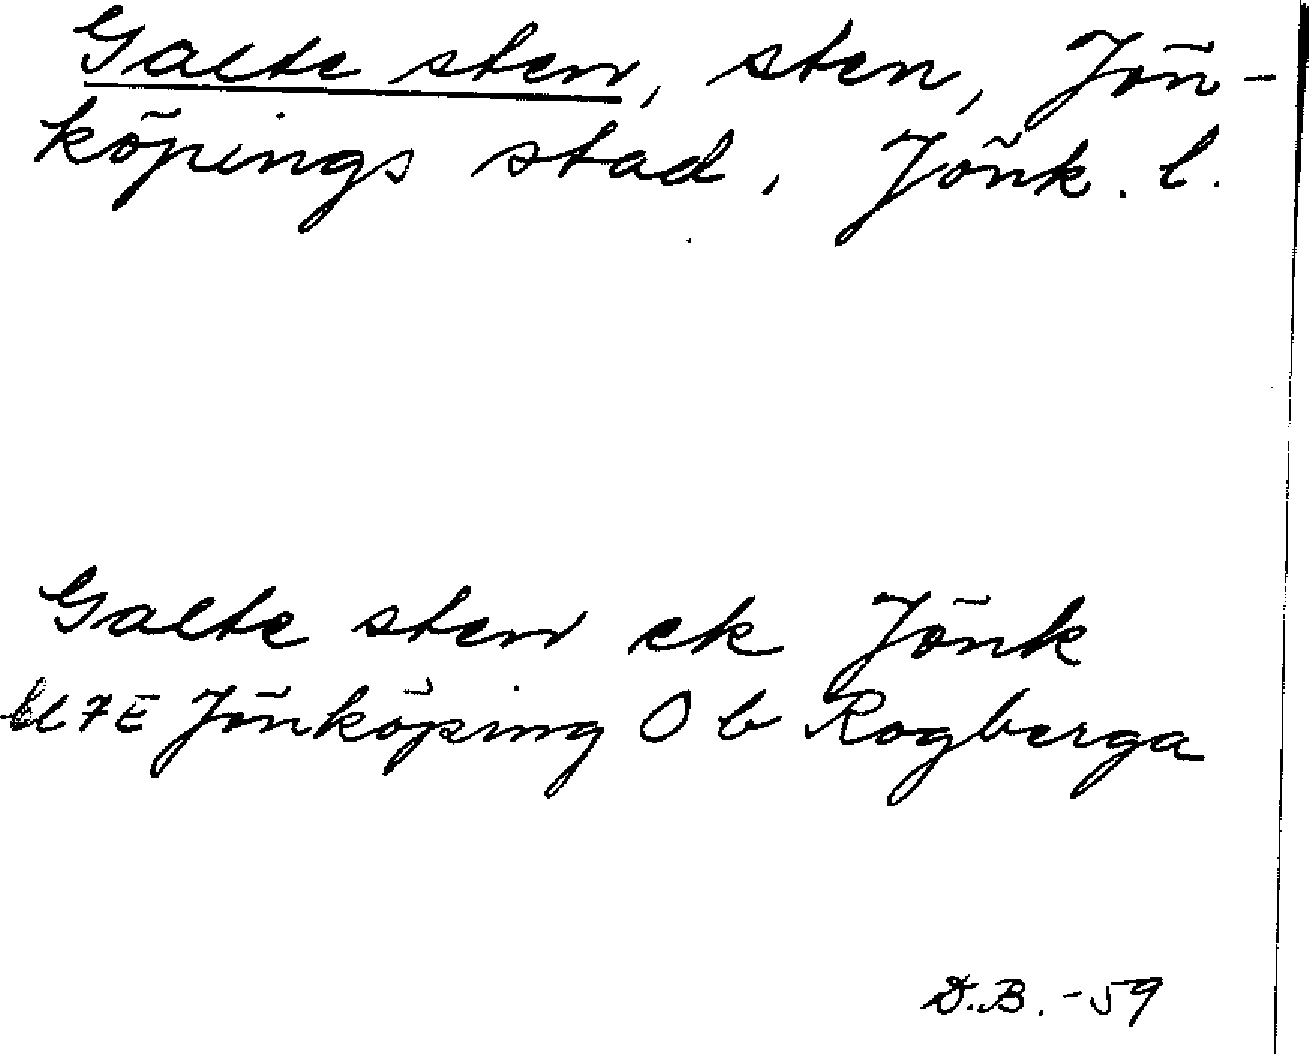 Galte sten, sten, Jön-
köpings stad, Jönk. l.
Galte sten ek Jönk
7E Jönköping Ob Rogberga
D.B. -59